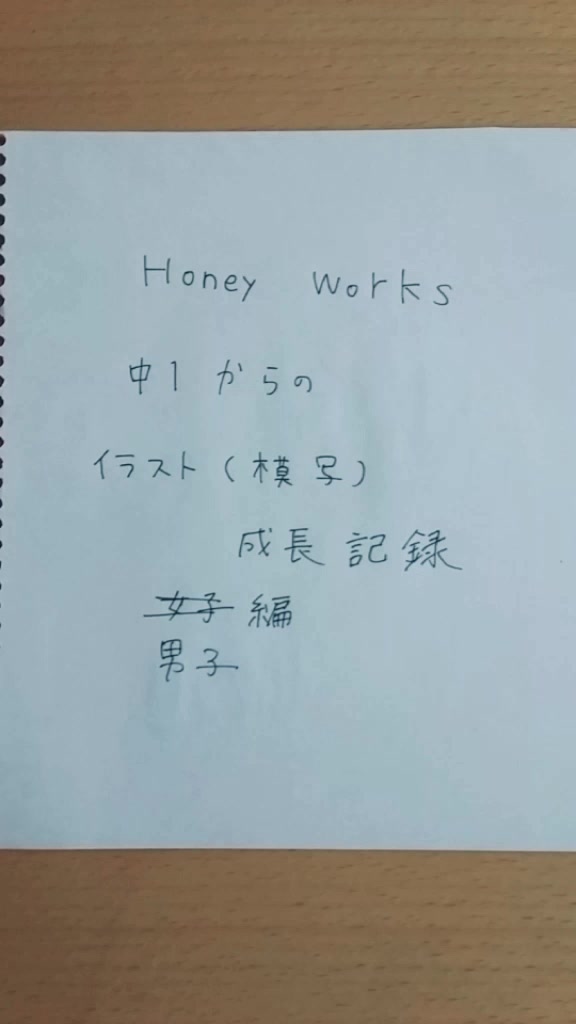 Honey Works
中1からの
イラスト(模写)
成長記録
女子編
男子